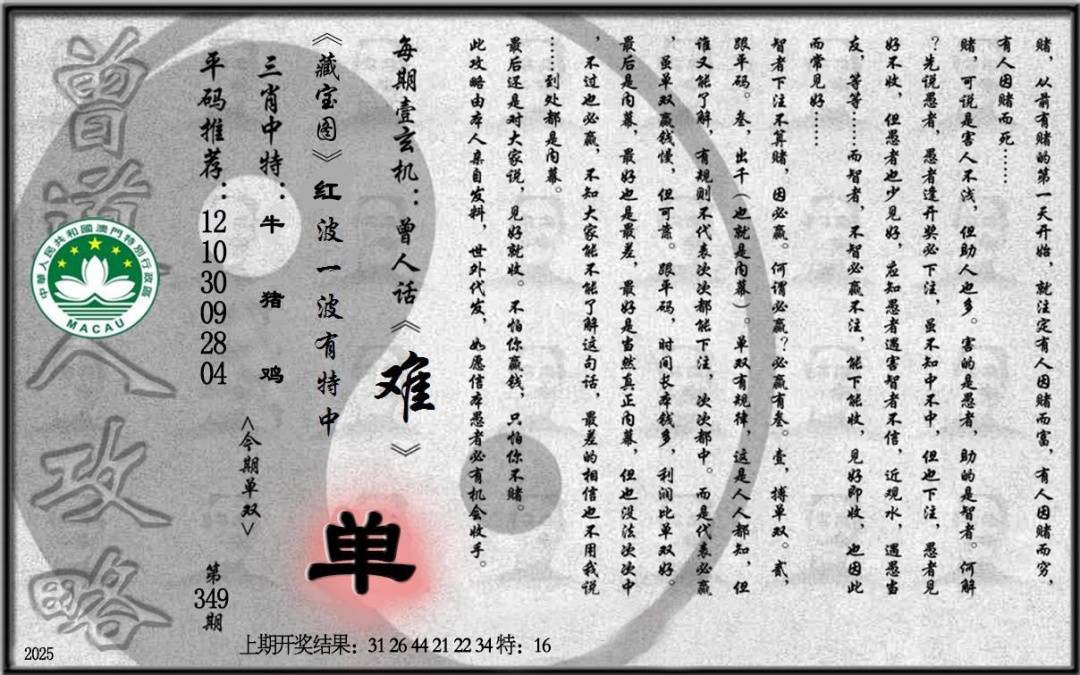 赌，从前有赌的第一天开始，就注定有人因赌而富，有人因赌而穷，
有人因赌而死……
赌，可说是害人不浅，但助人也多。害的是愚者，助的是智者。何解
？先说愚者，愚者逢开奖必下注，虽不知中不中，但也下注，愚者见
好不收，但愚者也少见好，应知愚者遇害智者不信，近观水，遇愚当
友，等等……而智者，不智必赢不注，能下能收，见好即收，也因此
而常见好……
智者下注不算赌，因必赢。何谓必赢？必赢有叁。壹，搏单双。贰，
跟单码。叁，出千（也就是内幕）。单双有规律，这是人人都知，但
谁又能了解，有规则不代表次次都能下注，次次都中。而是代表必赢
，虽单双赢钱慢，但可靠。跟单码，时间长本钱多，利润比单双好。
最后是内幕，最好也是最差，最好是当然真正内幕，但也没法次次中
，不过也必赢，不知大家能不能了解这句话，最差的相信也不用我说
……到处都是内幕。
最后还是对大家说，见好就收。不怕你赢钱，只怕你不赌。
此攻略由本人亲自发料，世外代发，如愿信本愚者必有机会收手。
每期壹玄机：曾人话《难》
《藏宝图》红波一波有特中
单
三肖中特：牛 猪 鸡
<今期单双>
平码推荐：
12
10
30
09
28
04
第
349
期
曾道人攻略
中華人民共和國澳門特別行政區
MACAU
上期开奖结果：31 26 44 21 22 34 特：16
2025